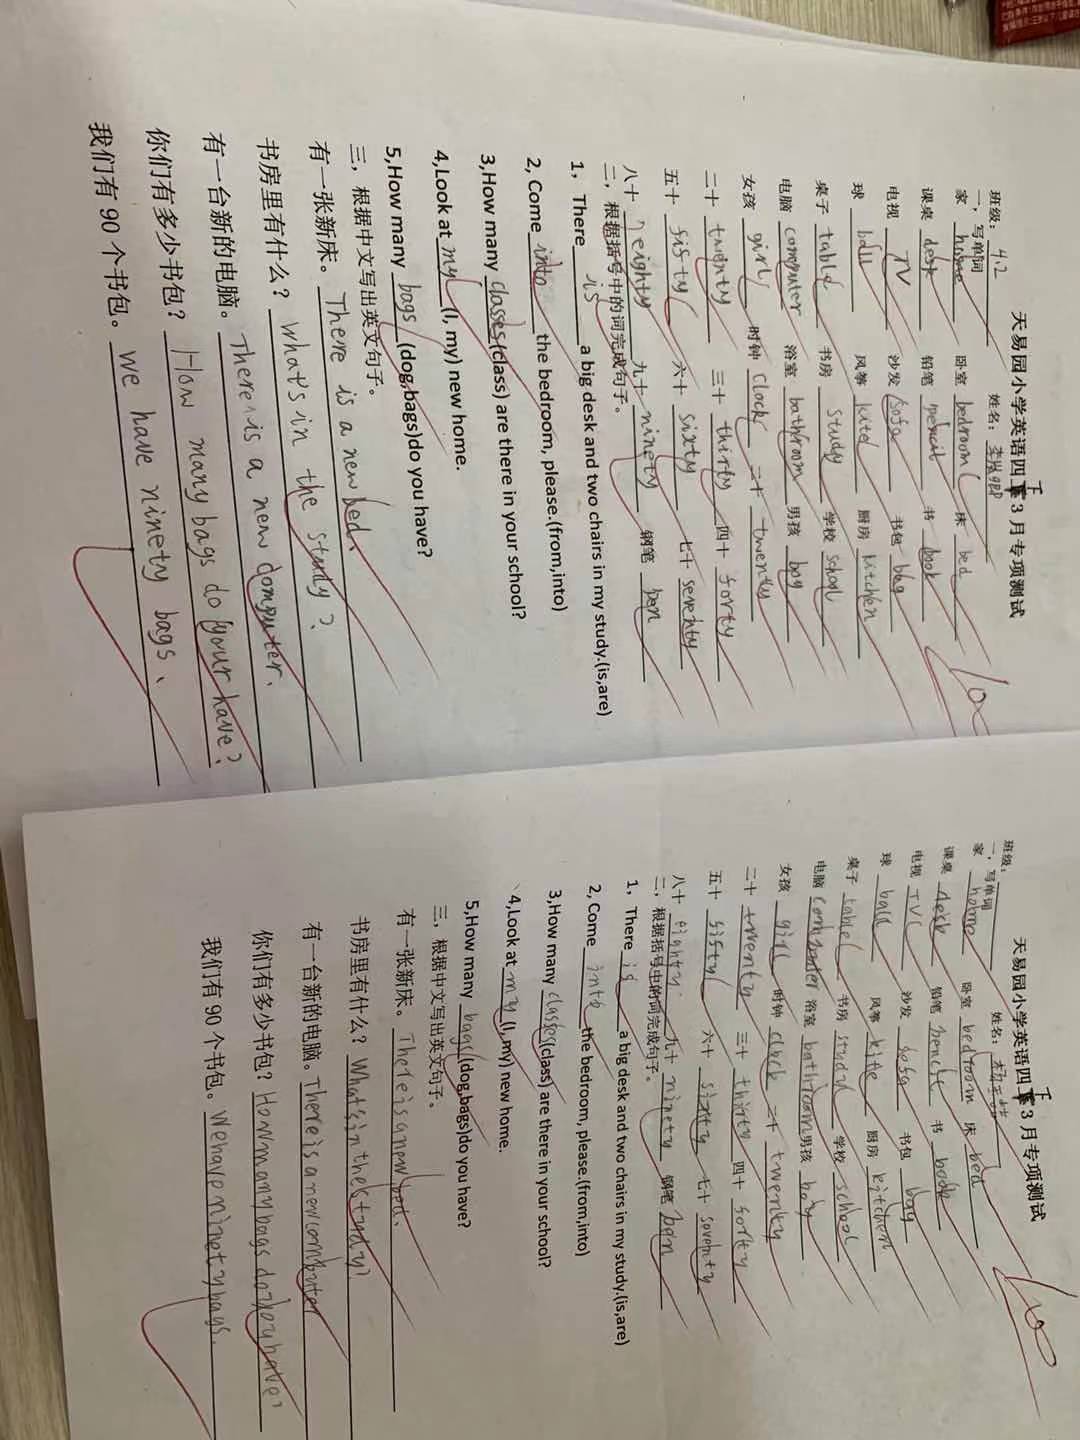 天易园小学英语四下3月专项测试
班级: 4.2 姓名:
一,写单词
家 home 卧室 bedroom 床 bed
课桌 desk 铅笔 书 book
电视 TV 沙发 sofa 书包 bag
球 ball 风筝 厨房 kitchen
桌子 table 书房 study 学校 school
电脑 computer 浴室 bathroom 男孩 boy
女孩 girl 时钟 clock 二十 twenty
二十 twenty 三十 thirty 四十 forty
五十 fifty 六十 sixty 七十 seventy
八十 eighty 九十 ninety 钢笔 pen
二,根据括号中的词完成句子。
1, There is a big desk and two chairs in my study.(is,are)
2, Come into the bedroom, please.(from,into)
3,How many classes (class) are there in your school?
4,Look at my (I, my) new home.
5,How many bags (dog,bags)do you have?
三,根据中文写出英文句子。
有一张新床。There is a new bed.
书房里有什么?What's in the study?
有一台新的电脑。There is a new domputer.
你们有多少书包?How many bags do your have?
我们有 90 个书包。We have ninety bags、
天易园小学英语四下3月专项测试
班级: 姓名:
一,写单词
家 home 卧室 bedroom 床 bed
课桌 desk 铅笔 书 book
电视 TV 沙发 sofa 书包 bag
球 ball 风筝 kite 厨房 kitchen
桌子 table 书房 study 学校 school
电脑 浴室 bathroom 男孩 boy
女孩 girl 时钟 clock 二十 twenty
二十 twenty 三十 thirty 四十 forty
五十 fifty 六十 sixty 七十
八十 eighty 九十 ninety 钢笔 pen
二,根据括号中的词完成句子。
1, There is a big desk and two chairs in my study.(is,are)
2, Come into the bedroom, please.(from,into)
3,How many classes (class) are there in your school?
4,Look at my (I, my) new home.
5,How many bags (dog,bags)do you have?
三,根据中文写出英文句子。
有一张新床。There is a new bed.
书房里有什么?What's in the study?
有一台新的电脑。There is a new
你们有多少书包?How many bags do have?
我们有 90 个书包。We have ninety bags.